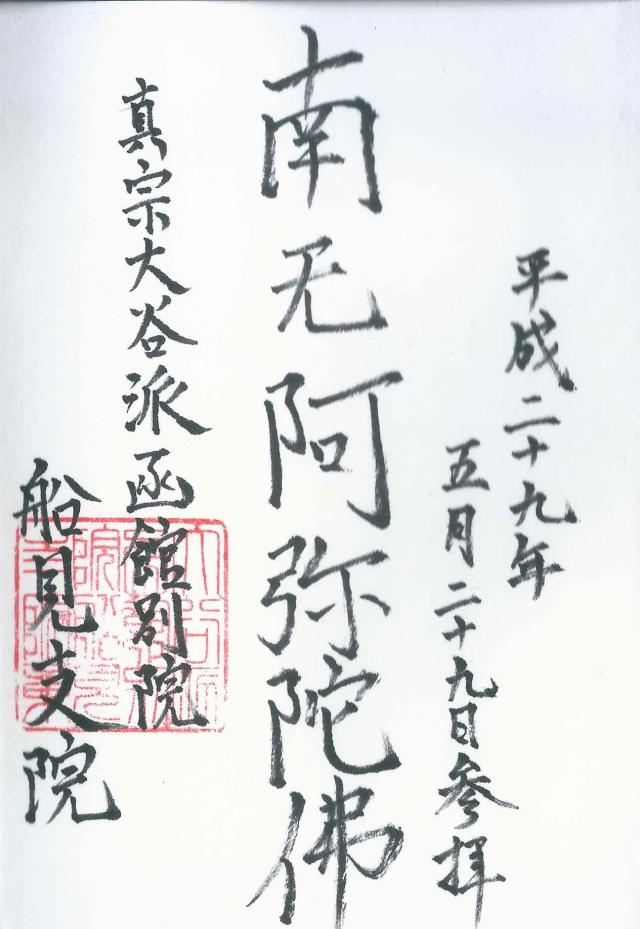 平成二十九年
五月二十九日参拝
南无阿弥陀佛
真宗大谷派函館別院
船見支院